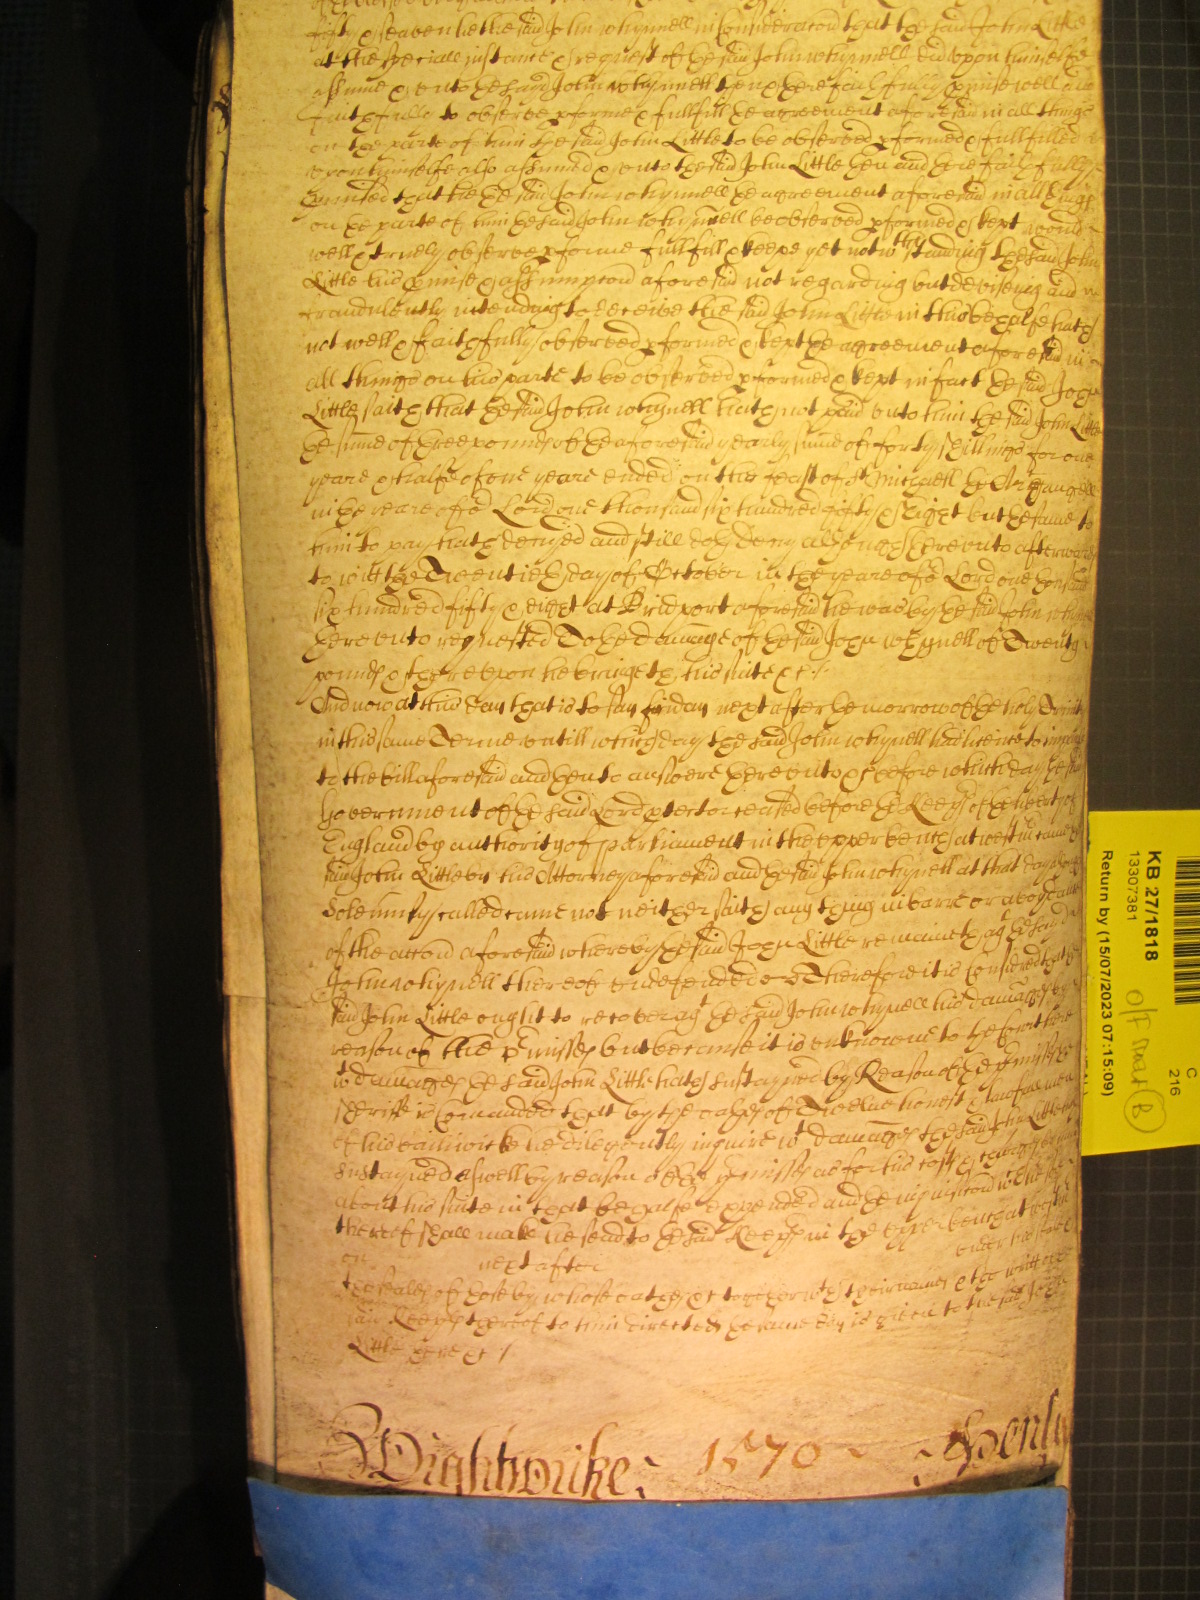 fifty & seaven hee the said John Whynnell in Consideracon that the said John Little
at the speciall instance & request of the said John Whynnell had upon himselfe
assumed & unto the said John Whynnell then & there faithfully pmised well and
faithfully to observe pforme & fullfill the agreement aforesaid in all things
on the parte of him the said John Little to be observed pformed & fullfilled
upon himselfe also assumed & unto the said John Little then and there faithfully
pmised that hee the said John Whynnell the agreement aforesaid in all things
on the parte of him the said John Whynnell to be observed pformed & kept would
well & truely observe pforme fullfill & keepe yet notwthstanding the said John
Little his pmise & assumpcon aforesaid not regarding but deviseing and
fraudulently intending to deceive the said John Little in this behalfe hath
not well & faithfully observed pformed & kept the agreement aforesaid in
all things on his parte to be observed pformed & kept in fact the said John
Little saith that the said John Whynell hath not paid unto him the said John Little
the sume of three pounds of the aforesaid yearly sume of forty shillings for one
yeare & halfe of one yeare ended on the feast of St Michaell the Archangell
in the yeare of or Lord one thousand six hundred fifty & Eight but the same to
him to pay hath denyed and still doth deny although thereunto afterwards
to witt the Twentieth day of October in the yeare of or Lord one thousand
six hundred fifty & eight at Bridport aforesaid he was by the said John Whynell
thereunto requested To the damage of the said John Whynell of Twenty
pounds & thereupon he bringeth his suite &c
And now at this day that is to say fryday next after the morrow of the holy Trinity
in this same Terme untill which day the said John Whynell had licence to imparle
to the bill aforesaid and then to answere thereunto &c before which day the
Government of the said Lord ptector ceased before the Keeps of the liberty of
England by authority of parliament in the upper bench at westmr came the
said John Little by his Attorney aforesaid and the said John Whynell at that day though
Solemnly called came not neither saith any thing in barre or avoydance
of the accon aforesaid whereby the said John Little remaineth agt the said
John Whynell thereof undefended Therefore it is considred that the
said John Little ought to recover agt the said John Whynell his damages by
reason of the pmisses but because it is unknowne to the Court here
wt damages the said John Little hath sustayned by Reason of the pmisses the
sheriffe is Comanded that by the oathes of Twelve honest & lawfull men
of his bailiwicke he diligently inquire wt damages the said John Little hath
sustayned aswell by reason of the pmisses as for his costs & charges
about his suite in that behalfe expended and the inquisicon wch he
thereof shall make he send to the said Keeps in the upper bench at westmr
on next after under his seale
the seales of those by whose oathes &c together wth their names & the writt of the
said Keeps thereof to him directed the same day is given to the said John
Little there &c
Wightwike 1570 Henly
KB 27/1818
13307381
Return by (15/07/2023 07:15:09)
C
216
O/F
B